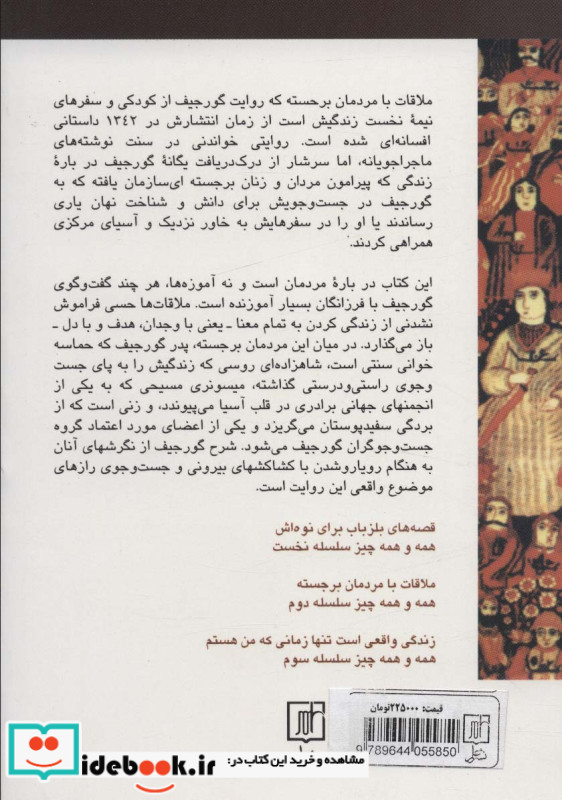 ملاقات با مردمان برجسته که روایت گورجیف از کودکی و سفرهای
نیمهٔ نخست زندگیش است از زمان انتشارش در ۱۳۴۲ داستانی
افسانه‌ای شده است. روایتی خواندنی در سنت نوشته‌های
ماجراجویانه، اما سرشار از درک‌دریافت یگانهٔ گورجیف در بارهٔ
زندگی که پیرامون مردان و زنان برجسته ای‌سازمان یافته که به
گورجیف در جست‌وجویش برای دانش و شناخت نهان یاری
رساندند یا او را در سفرهایش به خاور نزدیک و آسیای مرکزی
همراهی کردند.
این کتاب در بارهٔ مردمان است و نه آموزه‌ها، هر چند گفت‌وگوی
گورجیف با فرزانگان بسیار آموزنده است. ملاقات‌ها حسی فراموش
نشدنی از زندگی کردن به تمام معنا ـ یعنی با وجدان، هدف و با دل ـ
باز می‌گذارد. در میان این مردمان برجسته، پدر گورجیف که حماسه
خوانی سنتی است، شاهزاده‌ای روسی که زندگیش را به پای جست
وجوی راستی‌ودرستی گذاشته، میسونری مسیحی که به یکی از
انجمنهای جهانی برادری در قلب آسیا می‌پیوندد، و زنی است که از
بردگی سفیدپوستان می‌گریزد و یکی از اعضای مورد اعتماد گروه
جست‌وجوگران گورجیف می‌شود. شرح گورجیف از نگرشهای آنان
به هنگام رویاروشدن با کشاکشهای بیرونی و جست‌وجوی رازهای
موضوع واقعی این روایت است.
قصه‌های بلزباب برای نوه‌اش
همه و همه چیز سلسله نخست
ملاقات با مردمان برجسته
همه و همه چیز سلسله دوم
زندگی واقعی است تنها زمانی که من هستم
همه و همه چیز سلسله سوم
قیمت: ۲۲۵۰۰۰تومان
9 789644 055850
مشاهده و خرید این کتاب در:
idebook.ir